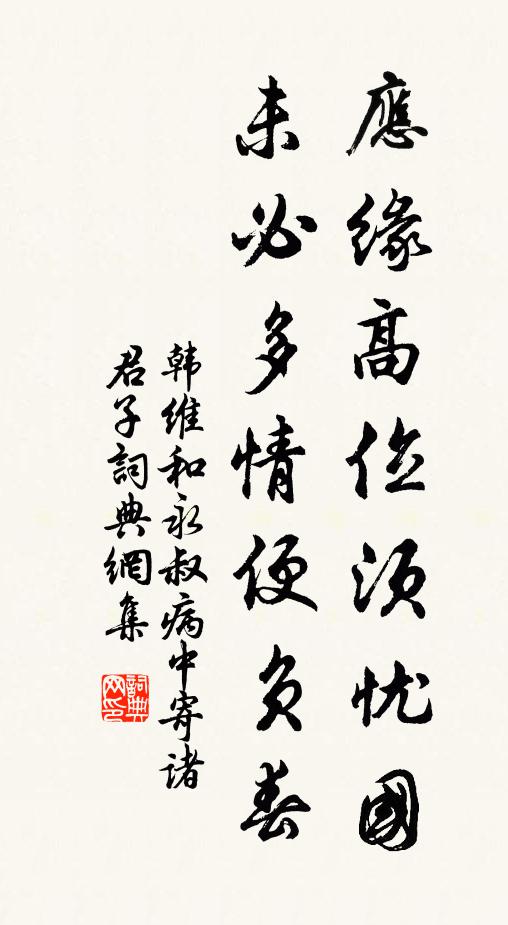 應缘高位须忧國
未必多情便负春
韩维和永叔病中寄诸
君子詞典網集
詞典网印